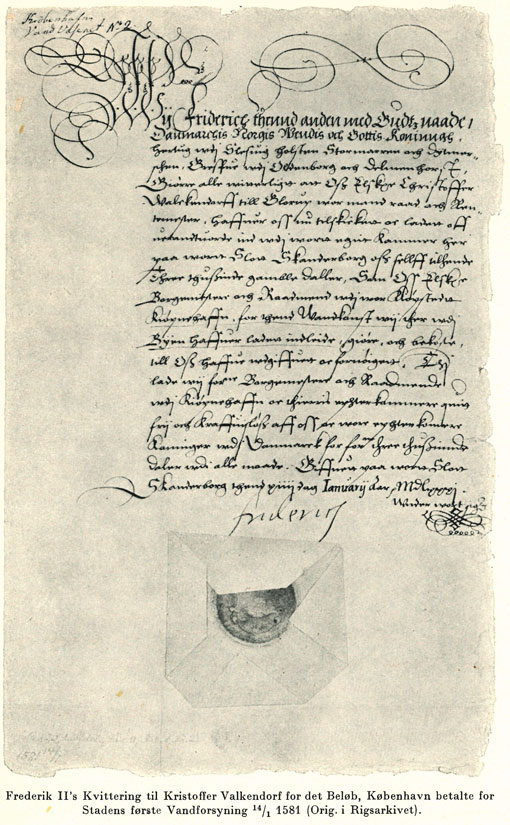 Kiøbenhafn
Vand Væsenet No 2.
Wij Friderich thend anden med Gudtz naade,
Danmarckis Norgis Wendis och Gottis Koninngh.
Hertug wdj Slesuig Holsten Stormarenn och Dytmer-
schen, Greffue wdj Oldenborg och Delmenhorst,
Giørre alle witterligtt att Oss Elskelig Christoffer
Walckendorff till Glorup wor mand raad och Ren-
temester, haffuer oss nu tilskicket oc ladett
indtt wdj wortt egitt Kammer her
paa wortt Slott Skanderborg oss sellff tilhende
Three thusinde gamble daller, Som Oss Elskelig
Borgemester och Raadmend wdj wor Kiøpsted
Kiøpnehaffn, for thend Wandkonst wij her wdj
Byen haffuer ladett indleide, giøre, och bekoste,
till Oss haffuer wdgiffuett oc fornøgett. Thj
lade wij for: Borgemester och Raadmende
wdj Kiøpnehaffn oc thieris epterkommere quit
frij och Kraffuisløss aff oss oc wore epterkommere
Konninger wdj Danmarck for for: three thusinde
daler wdj alle maade. Giffuett paa wortt Slott
Skanderborg thend xiiij dag Ianuarij Aar, Mdlxxxj.
Wnder wortt
Friderich
1581 14/1
Frederik II's Kvittering til Kristoffer Valkendorf for det Beløb, København betalte for
Stadens første Vandforsyning 14/1 1581 (Orig. i Rigsarkivet).